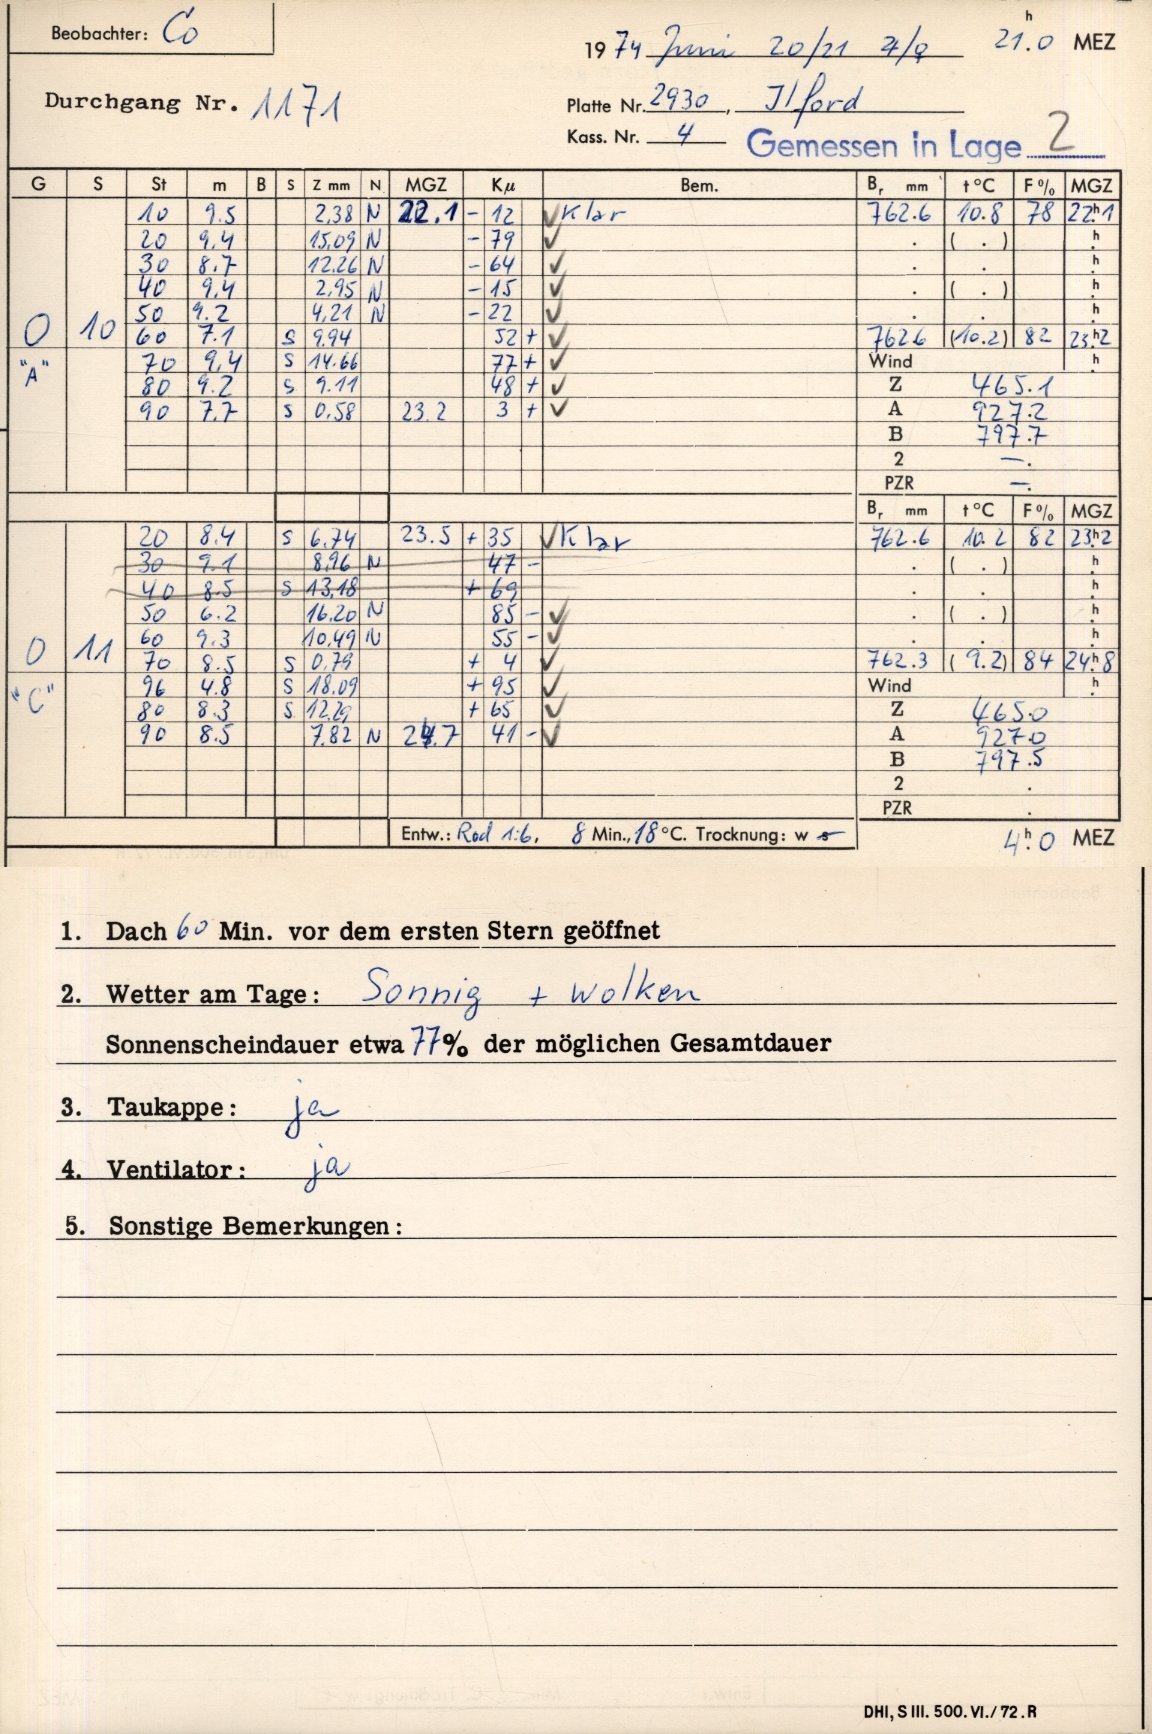 Beobachter: Co
1974 Juni 20/21 4/9 21ʰ.0 MEZ
Durchgang Nr. 1171
Platte Nr. 2930, Ilford
Kass. Nr. 4 Gemessen in Lage 2
G S St m B S Z mm N MGZ Kμ Bem. Br mm t °C F % MGZ
10 9.5 2.38 N 22.1 - 12 ✓ Klar 762.6 10.8 78 22ʰ.1
20 9.4 15.09 N - 79 ✓ . ( . ) ʰ.
30 8.7 12.26 N - 64 ✓ . . ʰ.
40 9.4 2.95 N - 15 ✓ . ( . ) ʰ.
50 9.2 4.21 N - 22 ✓ . . ʰ.
0 10 60 7.1 S 9.94 52 + ✓ 762.6 (10.2) 82 23ʰ.2
"A" 70 9.4 S 14.66 77 + ✓ Wind ʰ.
80 9.2 S 9.11 48 + ✓ Z 465.1
90 7.7 S 0.58 23.2 3 + ✓ A 927.2
B 797.7
2 —.
PZR —.
Br mm t °C F % MGZ
20 8.4 S 6.74 23.5 + 35 ✓ Klar 762.6 10.2 82 23ʰ.2
30 9.1 8.96 N 47 - . ( . ) ʰ.
40 8.5 S 13.18 + 69 . . ʰ.
50 6.2 16.20 N 85 - ✓ . ( . ) ʰ.
60 9.3 10.49 N 55 - ✓ . . ʰ.
0 11 70 8.5 S 0.79 + 4 ✓ 762.3 (9.2) 84 24ʰ.8
"C" 96 4.8 S 18.09 + 95 ✓ Wind ʰ.
80 8.3 S 12.29 + 65 ✓ Z 465.0
90 8.5 7.82 N 24.7 41 - ✓ A 927.0
B 797.5
2 .
PZR .
Entw.: Rod 1:6, 8 Min., 18 °C. Trocknung: w s 4ʰ.0 MEZ
1. Dach 60 Min. vor dem ersten Stern geöffnet
2. Wetter am Tage: Sonnig + Wolken
Sonnenscheindauer etwa 77% der möglichen Gesamtdauer
3. Taukappe: ja
4. Ventilator: ja
5. Sonstige Bemerkungen:
DHI, S III. 500. VI./72. R